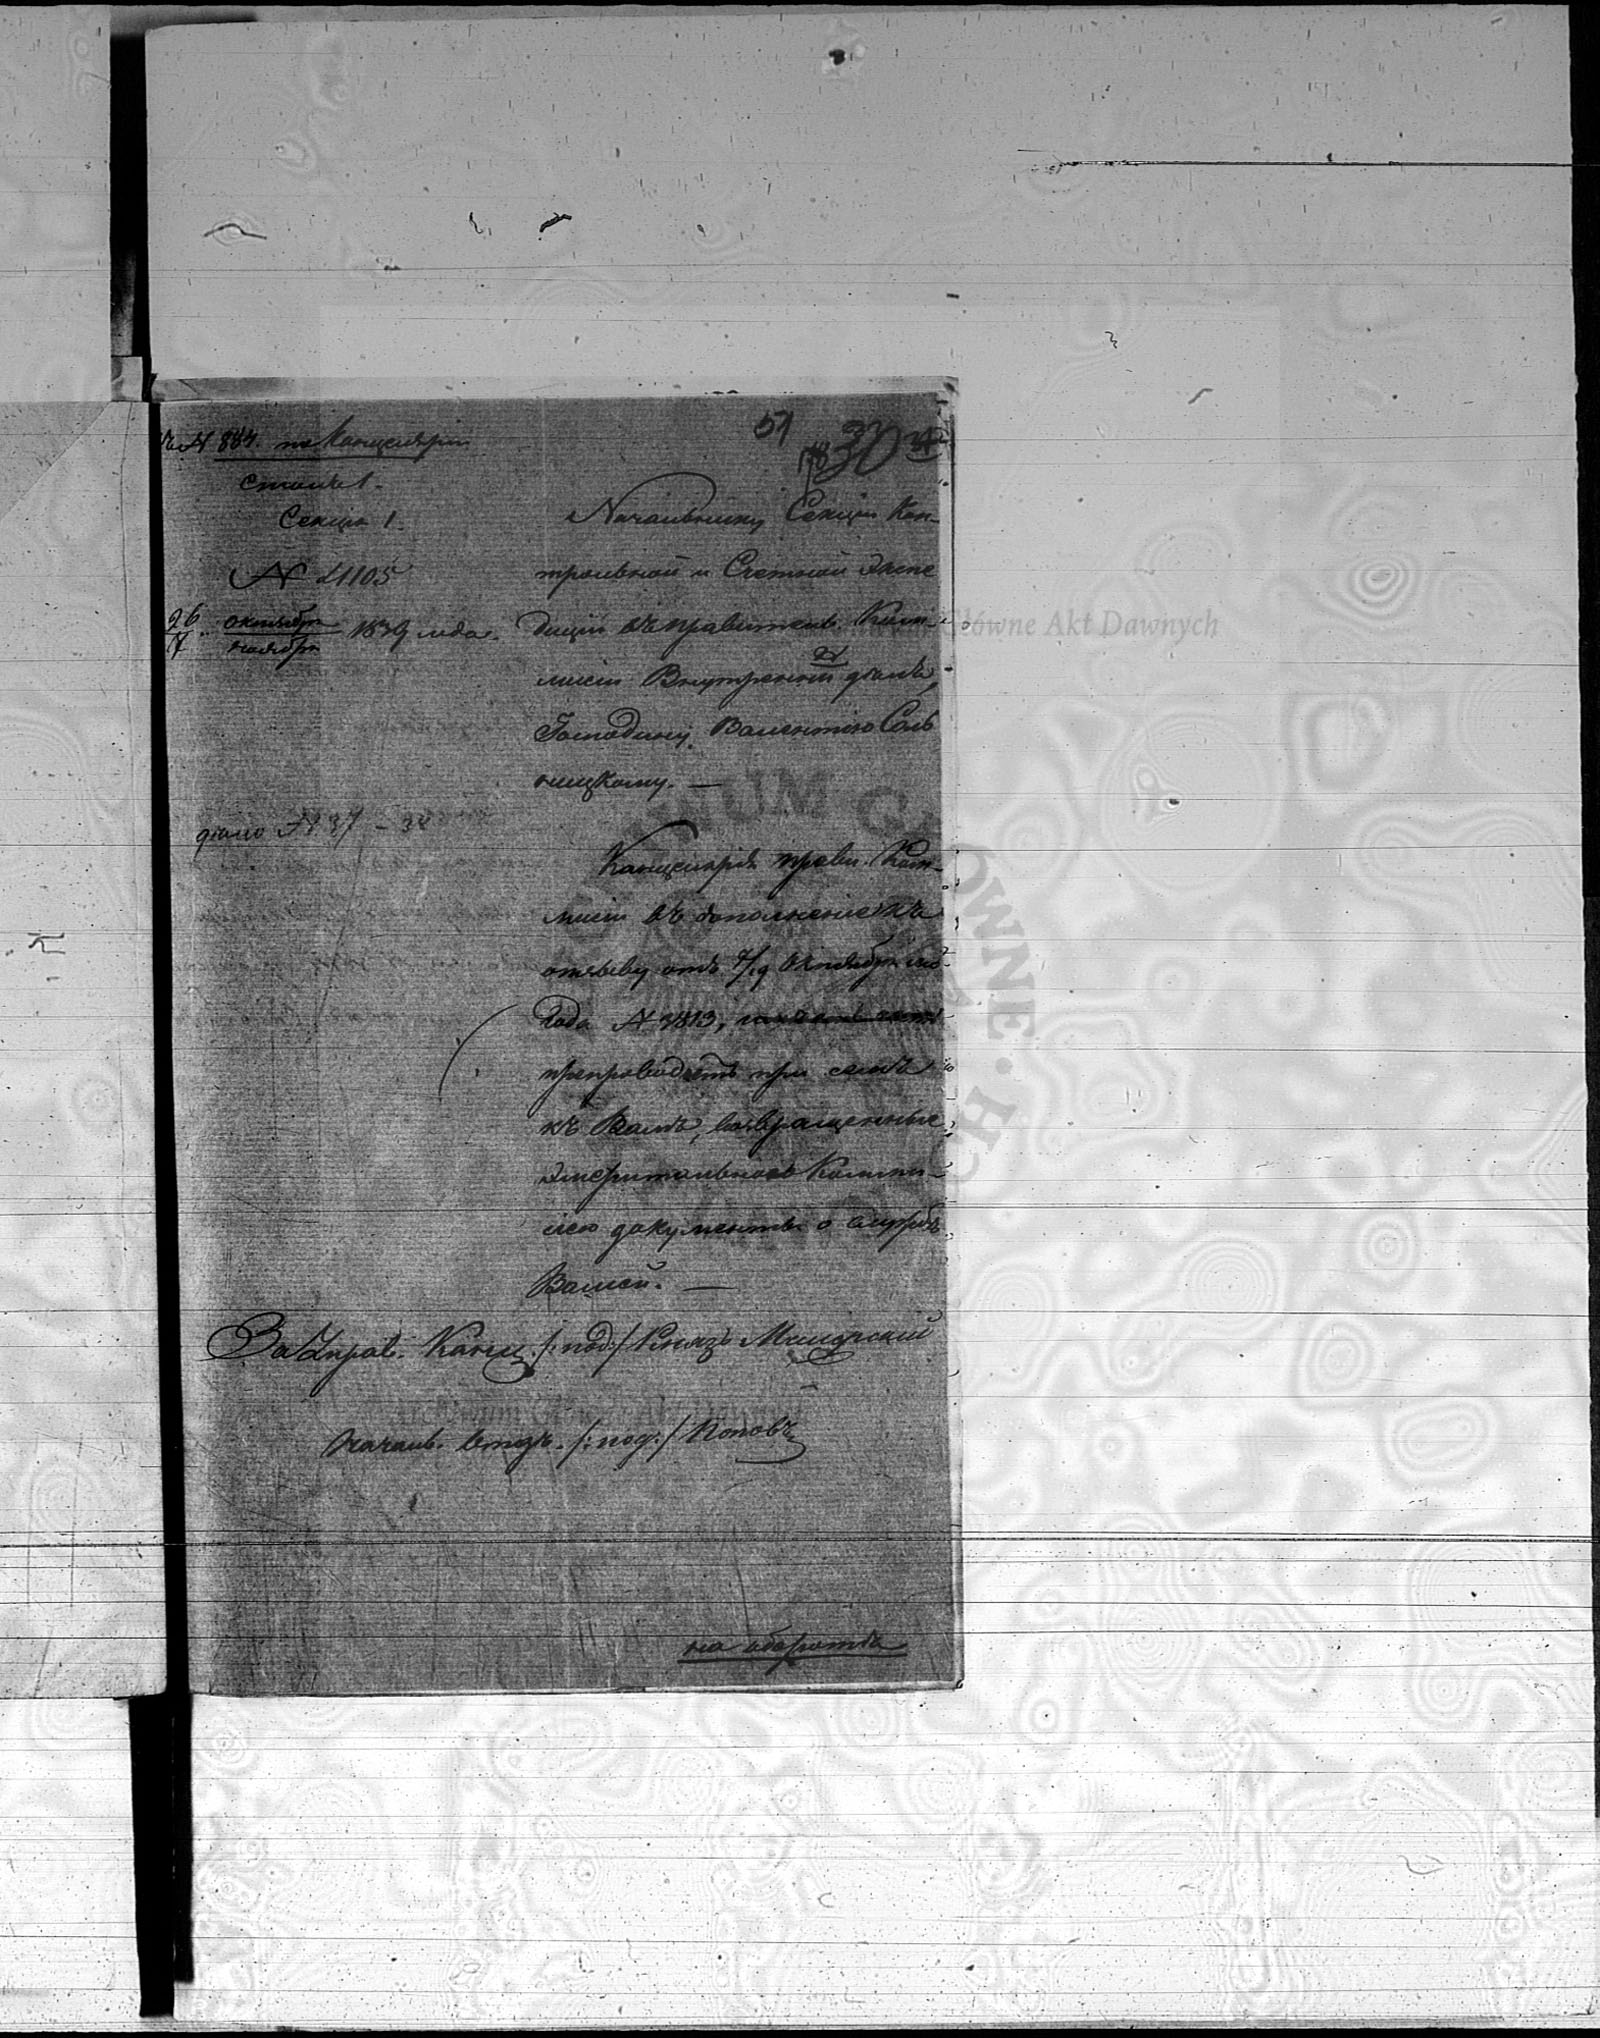 къ № 884. по Канцеляріи
Столъ 1.
Секція 1.
№ 41105
26/7 октября/ноября 1839 года.
дѣло № 37 – 38
51
30
Начальнику Секціи Кон-
трольной и Счетной Экспе
диціи въ правител. Ком-
мисіи Внутреннихъ дѣлъ,
Господину Валентію Соль
ницкому. —
Канцелярія прав. Ком-
мисіи въ дополненіе къ
отзыву отъ 7/19 Октября
года № 3813,
препровождаетъ при семъ
къ Вамъ, возвращенные
Эмеритальною Комми-
сіею документы о службѣ
Вашей. —
За Управ. Канц. /:под:/ Князь
Начал. Отд. /:под:/ Поповъ
на оборотѣ
Główne Akt Dawnych